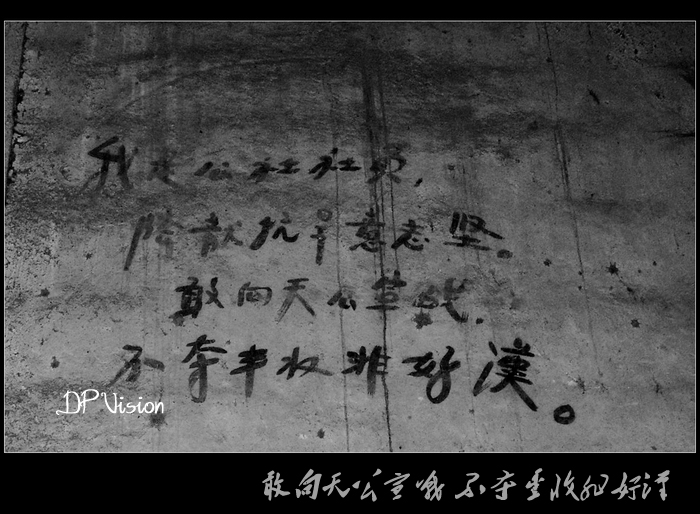 我是公社社员,
抗旱意志坚。
敢向天公宣战,
不夺丰收非好漢。
DPVision
敢向天公宣战 不夺丰收非好漢